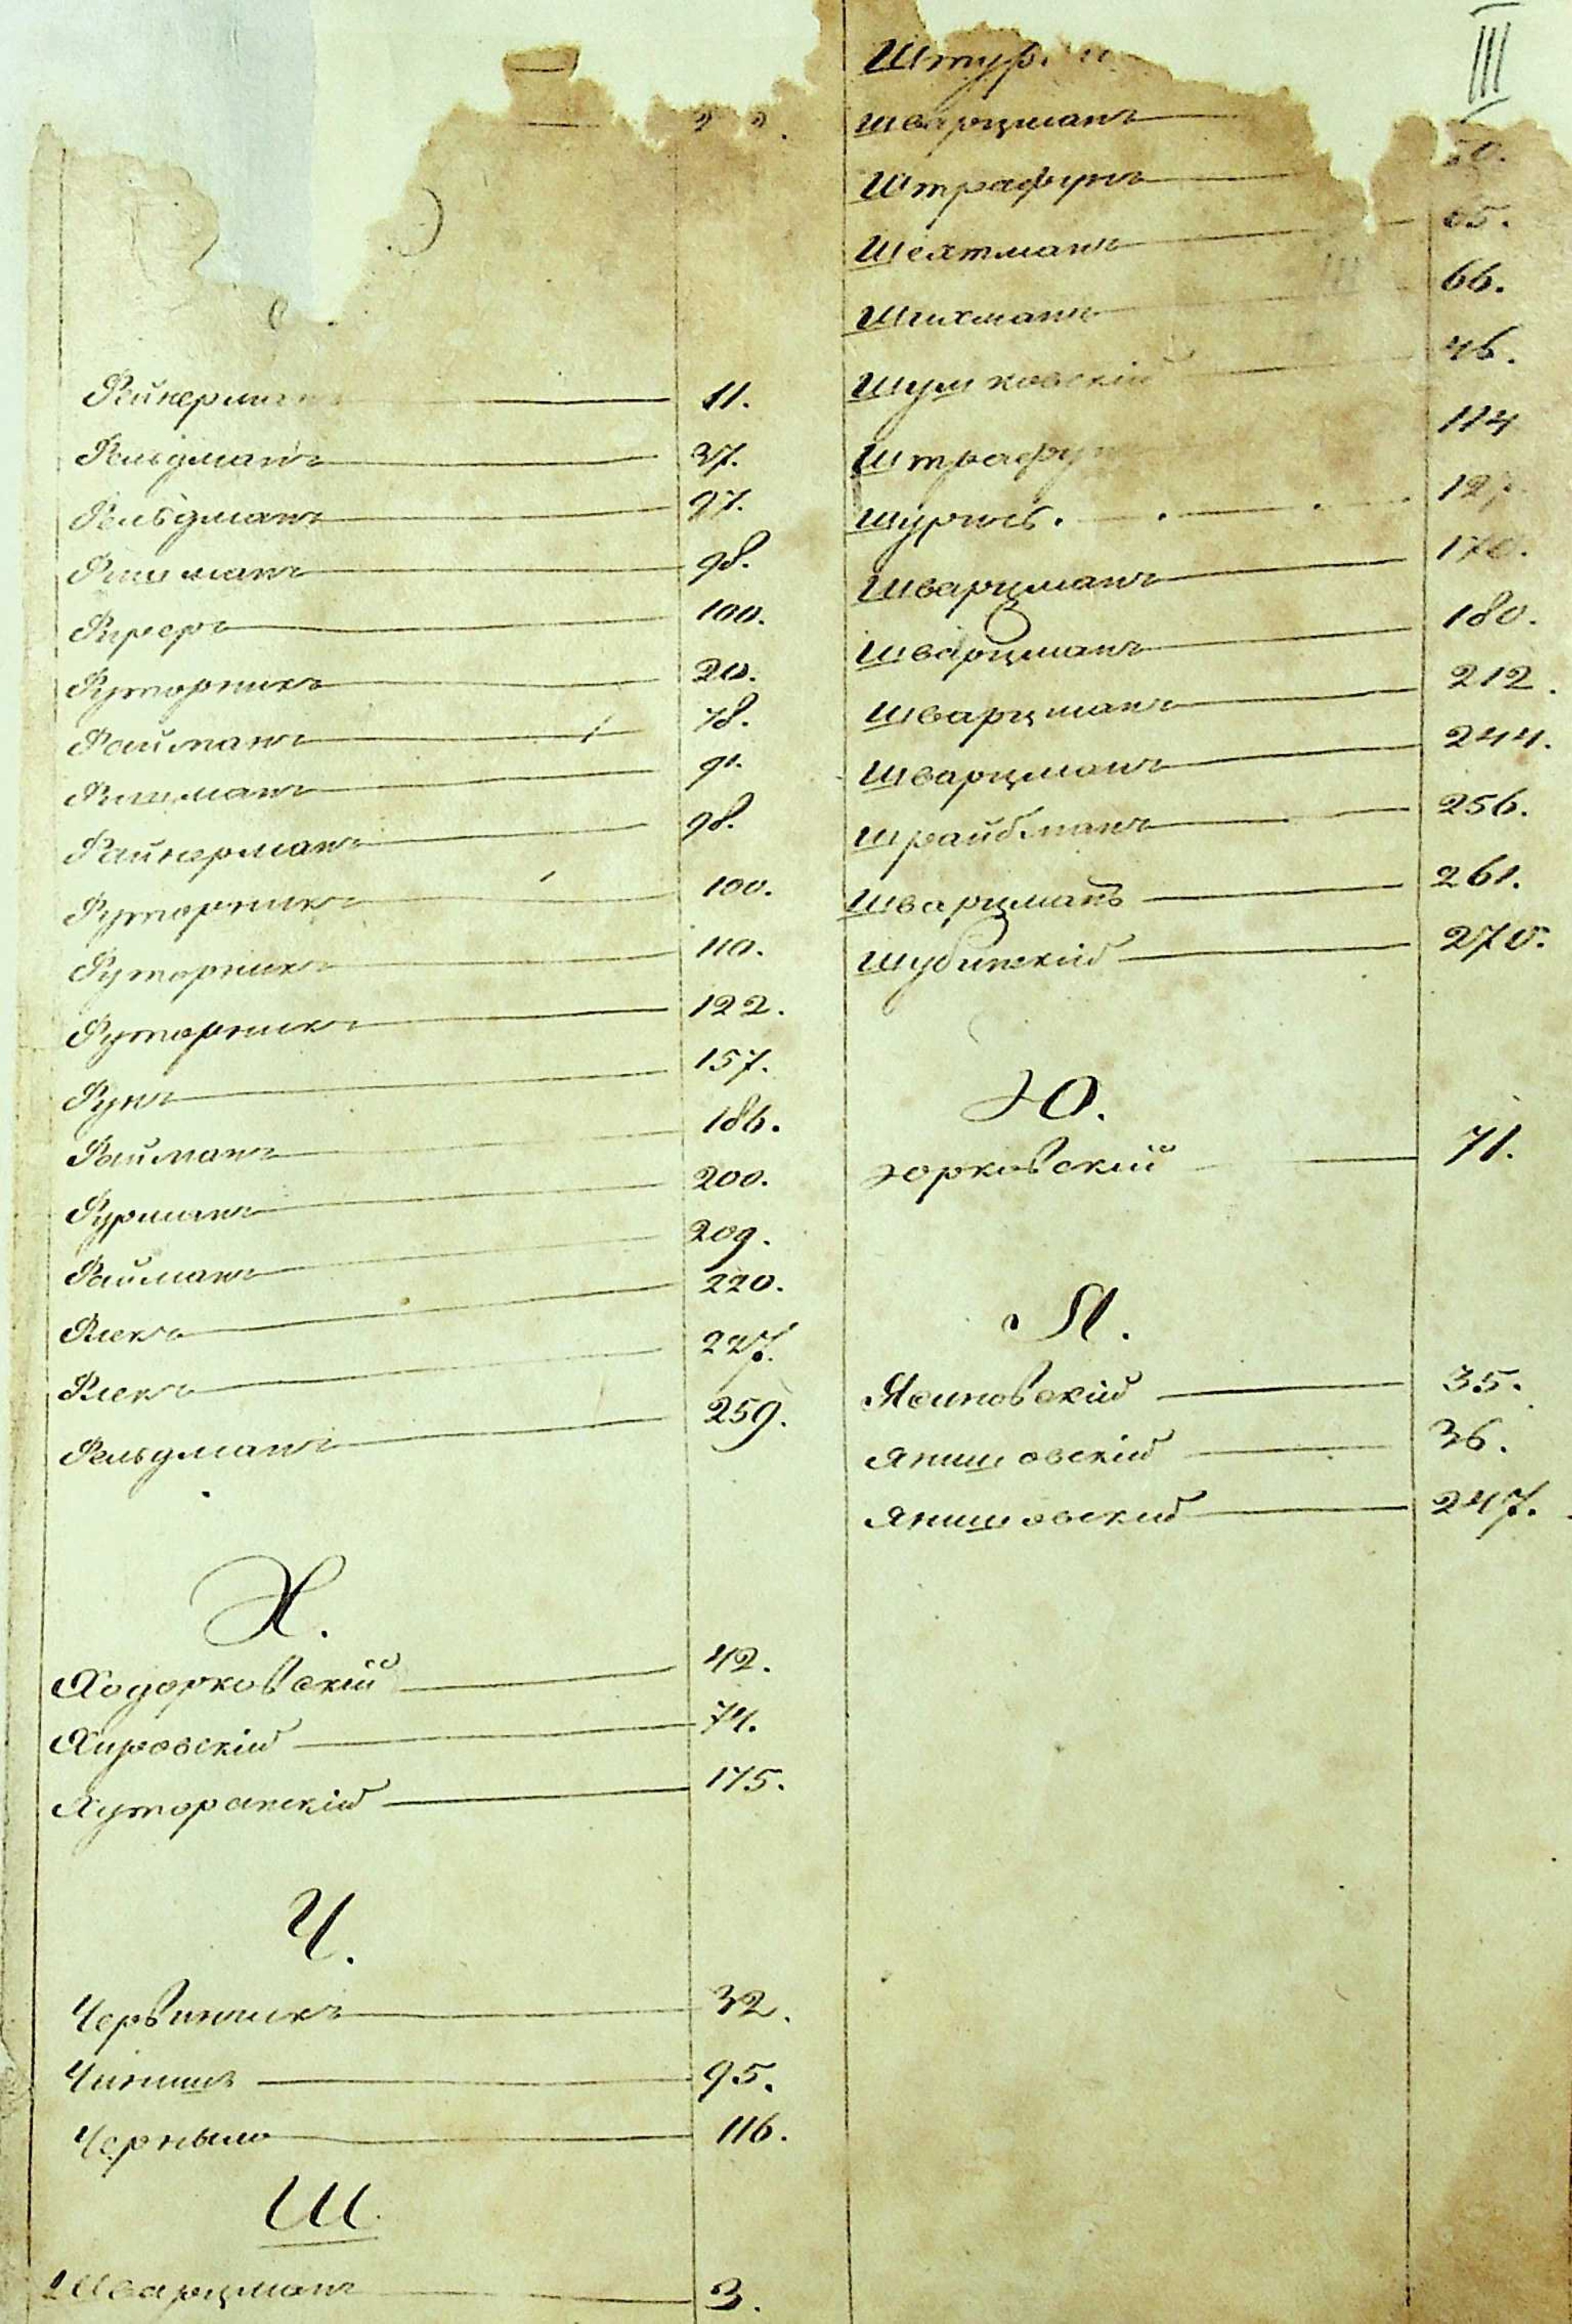 Файнерман 11.
Фельдманъ 37.
Фельдманъ 97.
Фишманъ 98.
Фуреръ 100.
Футорникъ 210.
Файманъ 78.
Фишманъ 91.
Файнерманъ 98.
Футорникъ 100.
Футорникъ 110.
Футорникъ 122.
Фунъ 157.
Файманъ 186.
Фурманъ 200.
Файманъ 209.
Флекъ 220.
Флекъ 227.
Фельдманъ 259.
Х.
Ходорковскій 42.
Хировскій 74.
Хуторанскій 175.
Ч.
Червинникъ 32.
Чинишъ 95.
Чернымо 116.
Ш
Шварцманъ 3.
III
Штур
Шварцманъ
Штрафунъ
Шехтманъ 65.
Шихманъ 66.
Шумковскій 46.
Штрафун 114
Шурисъ. 127
Шварцманъ 170.
Шварцманъ 180.
Шварцманъ 212.
Шварцманъ 244.
Шрайбманъ 256.
Шварцманъ 261.
Шубинскій 270.
Ю.
Юрковскій 71.
Я.
Ясиновскій 35.
Янишовскій 36.
Янишовскій 247.